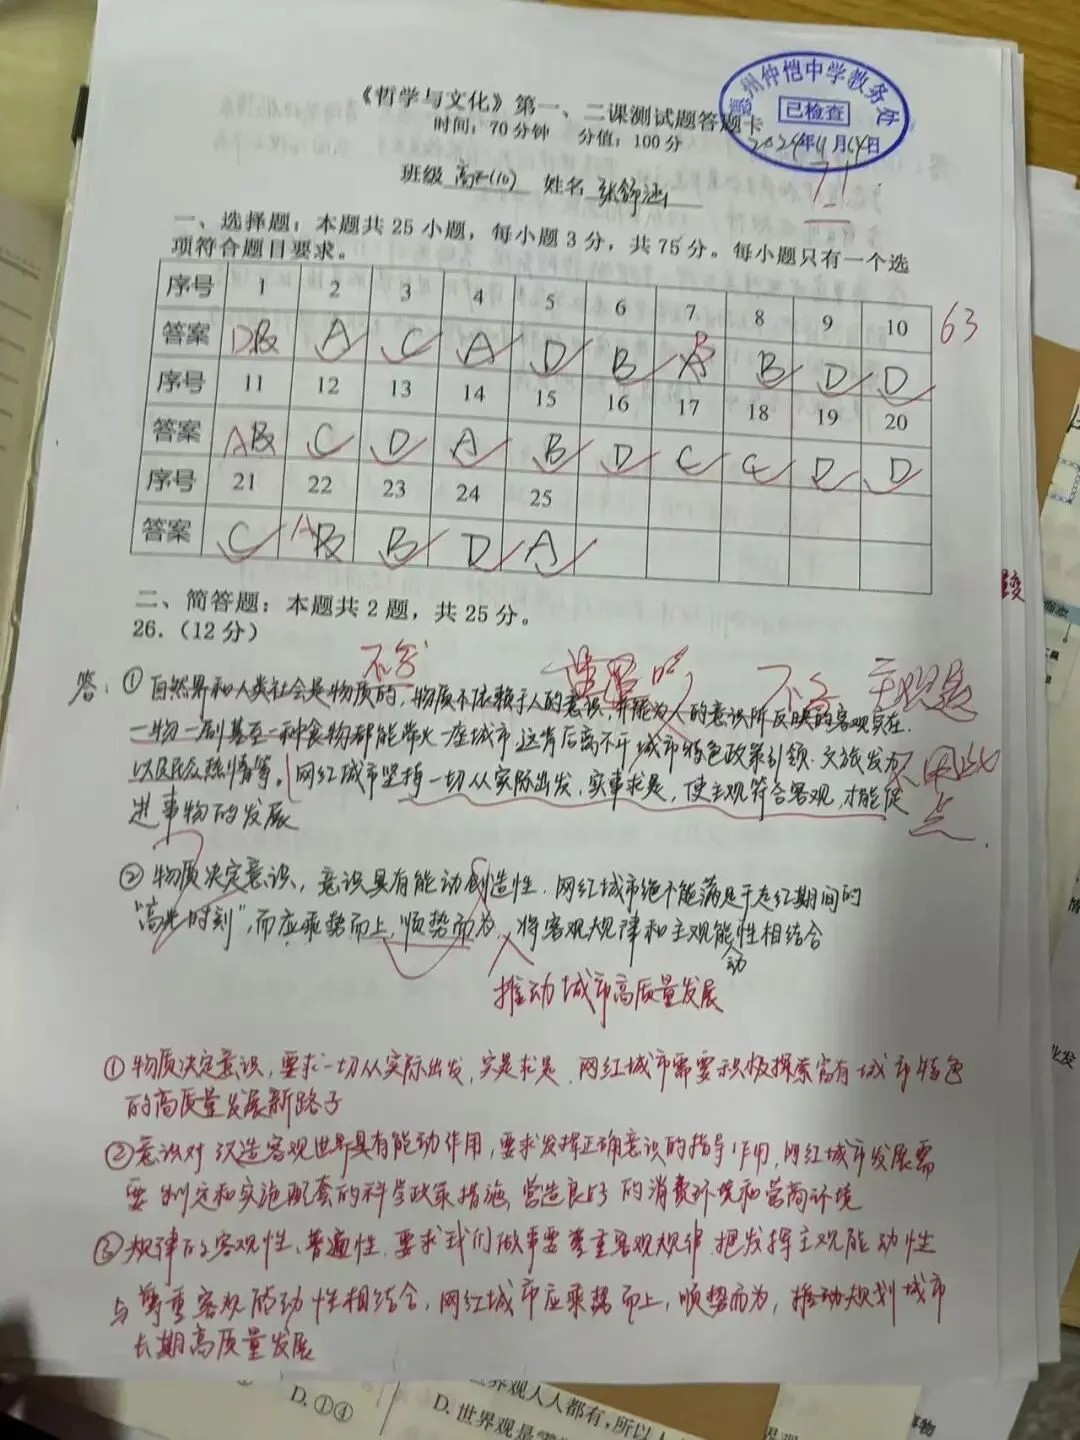 惠州仲恺中学教务处
已检查
2024年11月14日
《哲学与文化》第一、二课测试题答题卡
时间：70分钟 分值：100分
71
班级 高二(10) 姓名 张舒涵
一、选择题：本题共25小题，每小题3分，共75分。每小题只有一个选
项符合题目要求。
序号 1 2 3 4 5 6 7 8 9 10
63
答案 D B A C A D B A B B D D
序号 11 12 13 14 15 16 17 18 19 20
答案 A B C D A B D C C D D
序号 21 22 23 24 25
答案 C A B B D A
二、简答题：本题共2题，共25分。
26.（12分）
不答
主观题
答：①自然界和人类社会是物质的，物质不依赖于人的意识，并能为人的意识所反映的客观实在
一物一剧甚至一种食物都能带火一座城市，这背后离不开城市特色政策引领、文旅发力
以及民众热情等。网红城市坚持一切从实际出发，实事求是，使主观符合客观，才能促
进事物的发展
点.
②物质决定意识，意识具有能动创造性. 网红城市绝不能满足于走红期间的
“高光时刻”，而应乘势而上，顺势而为，将客观规律和主观能动性相结合
推动城市高质量发展
①物质决定意识，要求一切从实际出发，实是求是. 网红城市需要积极探索富有城市特色
的高质量发展新路子
②意识对改造客观世界具有能动作用，要求发挥正确意识的指导作用，网红城市发展需
要制定和实施配套的科学政策措施，营造良好的消费环境和营商环境
③规律的客观性、普遍性，要求我们做事要尊重客观规律，把发挥主观能动性
与尊重客观能动性相结合，网红城市应乘势而上，顺势而为，推动规划城市
长期高质量发展
D.①④
世界观人人都有，所以人
D.世界观是